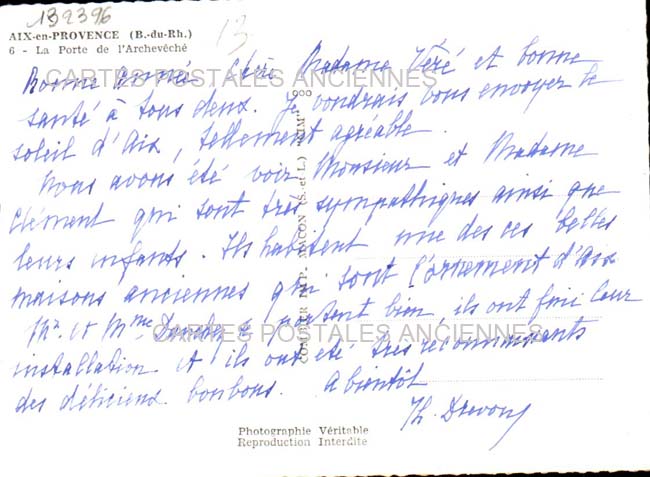 139396
AIX-en-PROVENCE (B.-du-Rh.)
6 - La Porte de l'Archevêché
13
Bonne année Chère Madame Véré et bonne
CARTES POSTALES ANCIENNES
santé à tous deux. Je voudrais vous envoyer le
soleil d'Aix, tellement agréable.
Nous avons été voir Monsieur et Madame
Clément qui sont très sympathiques ainsi que
leurs enfants. Ils habitent une des ces belles
maisons anciennes qui sont l'ornement d'Aix
Mr et Mme se portent bien, ils ont fini leur
CARTES POSTALES ANCIENNES
installation et ils ont été très reconnaissants
des délicieux bonbons. A bientôt
Th. Drevon
COMBIER IMP. MACON (S.-et-L.) "CIM"
Photographie Véritable
Reproduction Interdite